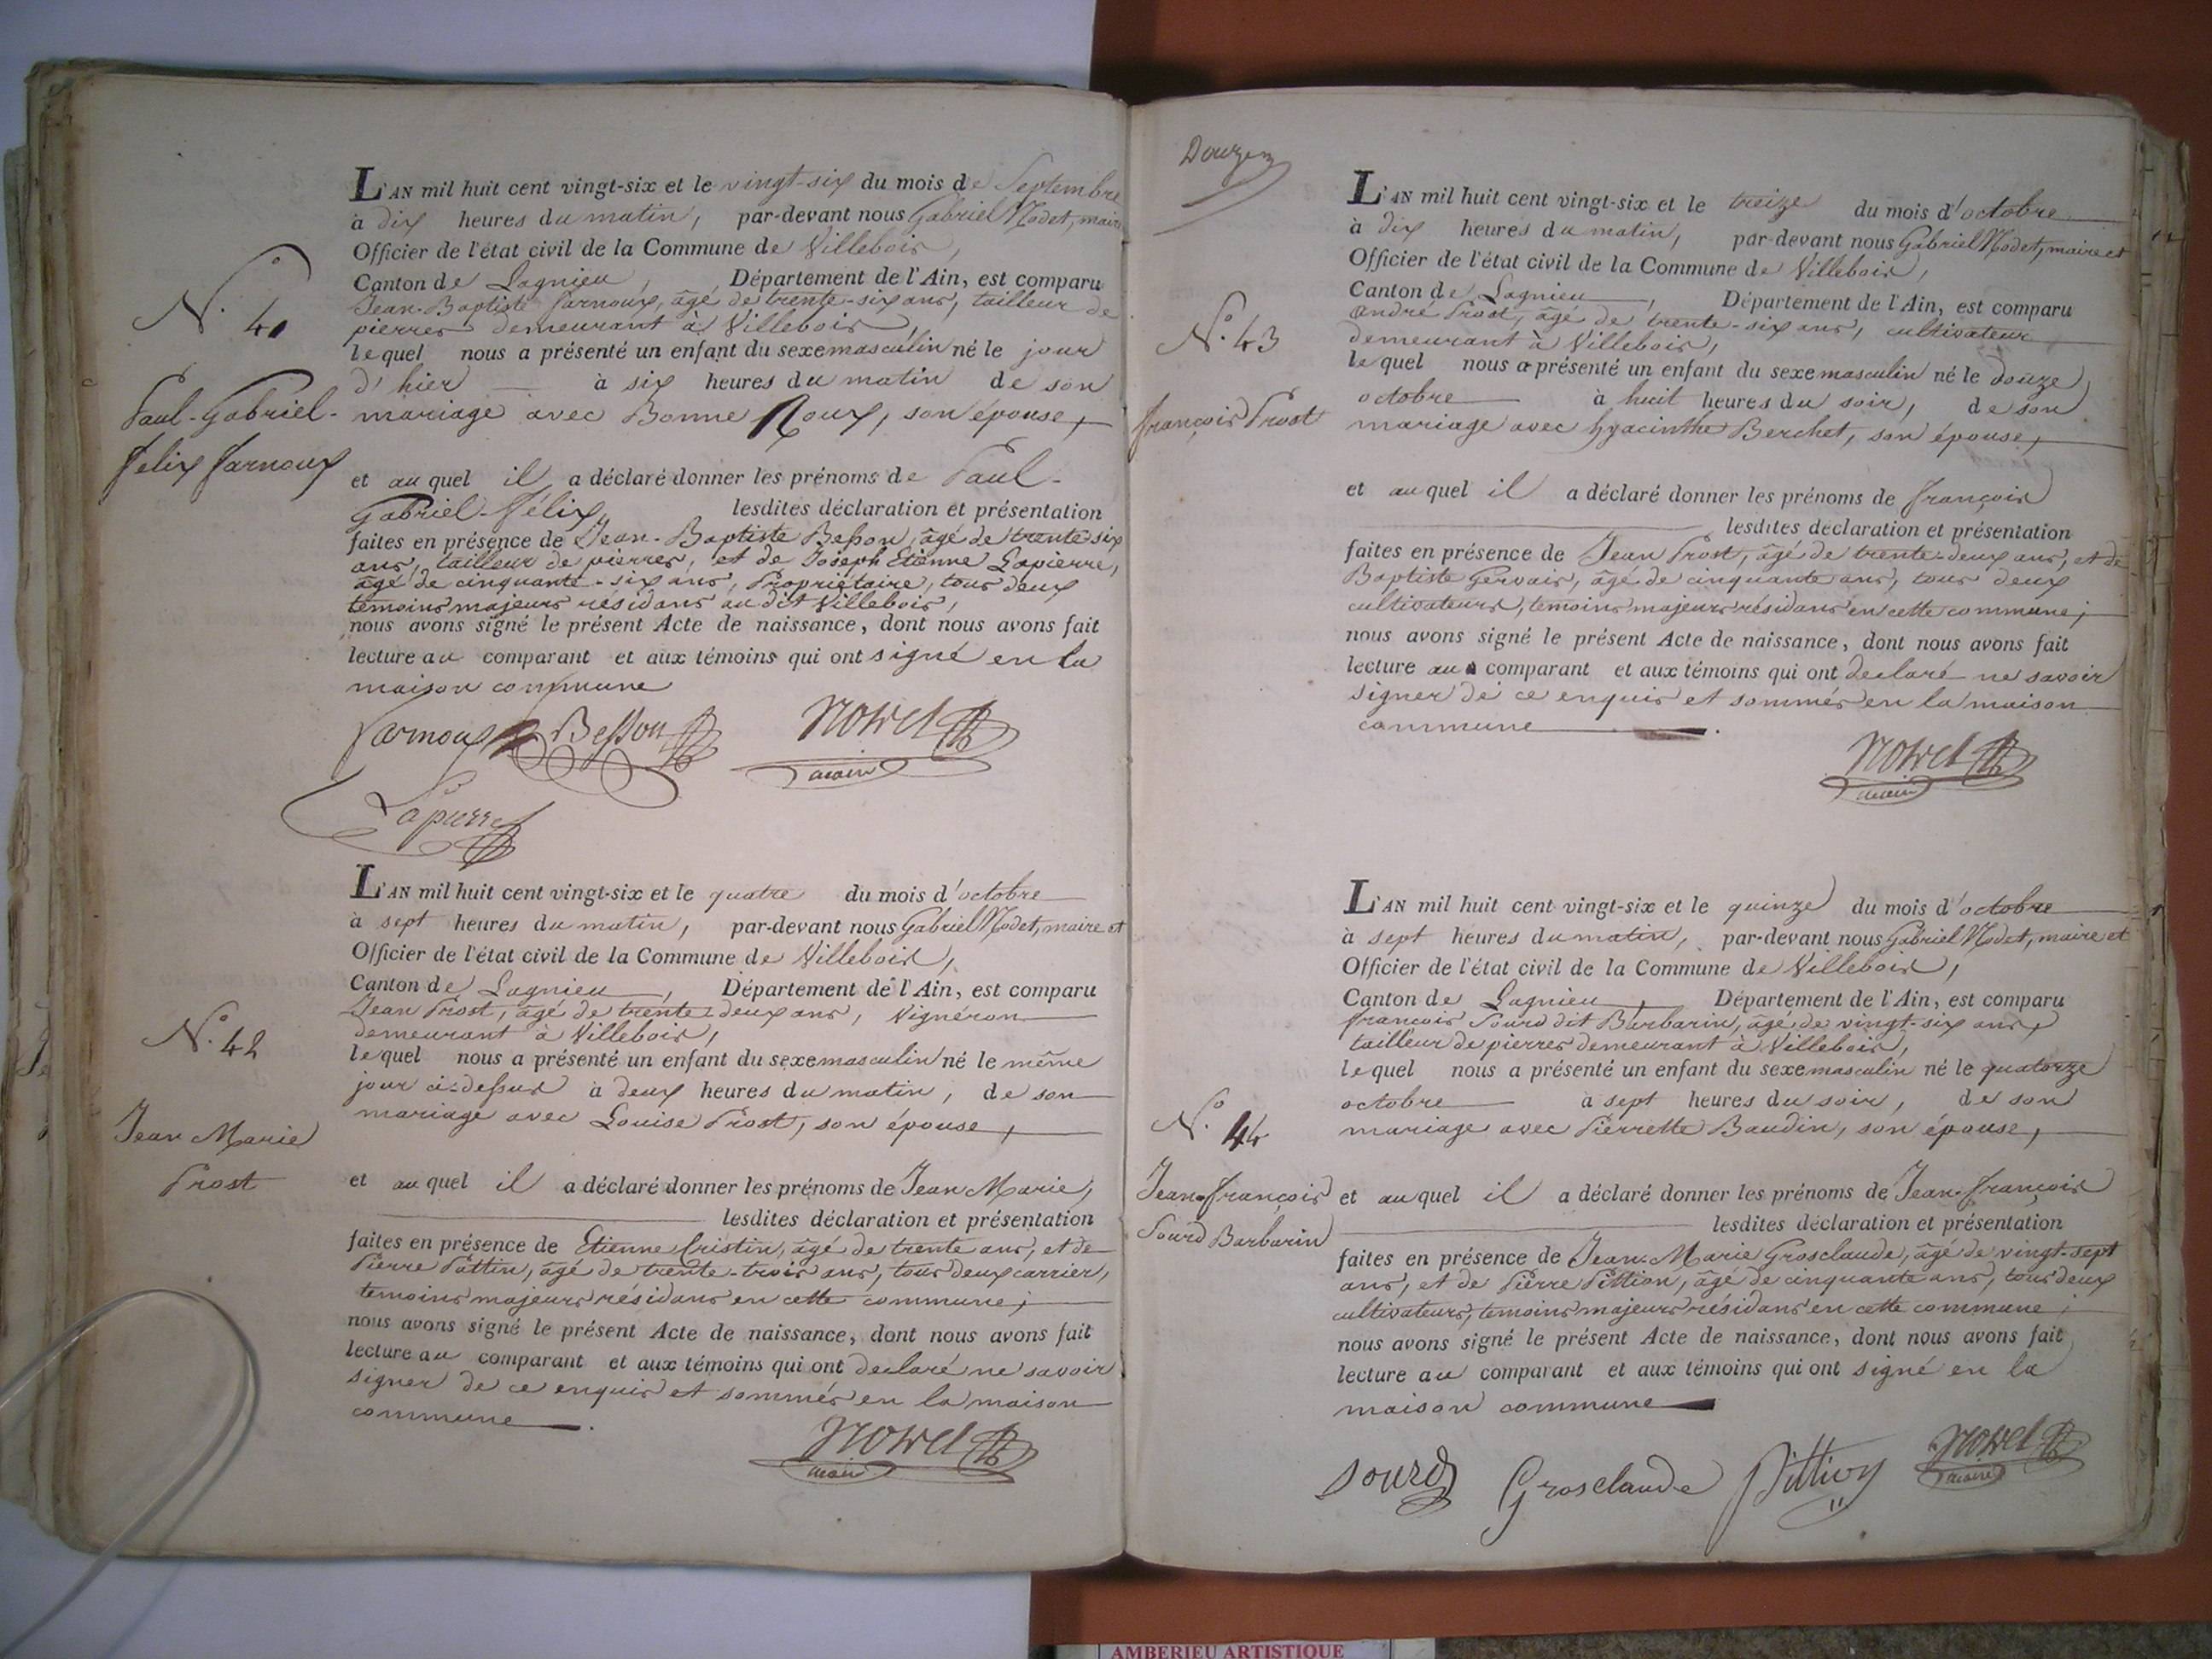 L'AN mil huit cent vingt-six et le vingt-six du mois de Septembre
à dix heures du matin, par-devant nous Gabriel Nodet, maire
Officier de l'état civil de la Commune de Villebois,
Canton de Lagnieu, Département de l'Ain, est comparu
Jean-Baptiste Jarnoux, âgé de trente-six ans, tailleur de
pierres demeurant à Villebois,
lequel nous a présenté un enfant du sexe masculin né le jour
d'hier à six heures du matin de son
mariage avec Bonne Roux, son épouse,
et auquel il a déclaré donner les prénoms de Paul-
Gabriel-Félix, lesdites déclaration et présentation
faites en présence de Jean-Baptiste Besson, âgé de trente-six
ans, tailleur de pierres, et de Joseph Etienne Lapierre,
âgé de cinquante-six ans, Propriétaire, tous deux
témoins majeurs résidans au dit Villebois,
nous avons signé le présent Acte de naissance, dont nous avons fait
lecture au comparant et aux témoins qui ont signé en la
maison commune
Jarnoux Besson Nodet
maire
Lapierre
N.o 41
Paul-Gabriel-
Felix Jarnoux
L'AN mil huit cent vingt-six et le quatre du mois d'octobre
à sept heures du matin, par-devant nous Gabriel Nodet, maire et
Officier de l'état civil de la Commune de Villebois,
Canton de Lagnieu, Département de l'Ain, est comparu
Jean Prost, âgé de trente-deux ans, Vigneron
demeurant à Villebois,
lequel nous a présenté un enfant du sexe masculin né le même
jour ci-dessus à deux heures du matin, de son
mariage avec Louise Prost, son épouse,
et auquel il a déclaré donner les prénoms de Jean Marie,
lesdites déclaration et présentation
faites en présence de Etienne Cristin, âgé de trente ans, et de
Pierre Pattin, âgé de trente-trois ans, tous deux carrier,
temoins majeurs résidans en cette commune;
nous avons signé le présent Acte de naissance, dont nous avons fait
lecture au comparant et aux témoins qui ont declaré ne savoir
signer de ce enquis et sommés en la maison
commune.
Nodet
maire
N.o 42
Jean Marie
Prost
Douzen
L'AN mil huit cent vingt-six et le treize du mois d'octobre
à dix heures du matin, par-devant nous Gabriel Nodet, maire et
Officier de l'état civil de la Commune de Villebois,
Canton de Lagnieu, Département de l'Ain, est comparu
andré Prost, âgé de trente-six ans, cultivateur
demeurant à Villebois,
lequel nous a présenté un enfant du sexe masculin né le douze
octobre à huit heures du soir, de son
mariage avec hyacinthe Berchet, son épouse,
et auquel il a déclaré donner les prénoms de françois
lesdites déclaration et présentation
faites en présence de Jean Prost, âgé de trente-deux ans, et de
Baptiste Gervais, âgé de cinquante ans, tous deux
cultivateurs, temoins majeurs résidans en cette commune;
nous avons signé le présent Acte de naissance, dont nous avons fait
lecture au comparant et aux témoins qui ont declaré ne savoir
signer de ce enquis et sommés en la maison
commune.
Nodet
maire
N.o 43
françois Prost
L'AN mil huit cent vingt-six et le quinze du mois d'octobre
à sept heures du matin, par-devant nous Gabriel Nodet, maire et
Officier de l'état civil de la Commune de Villebois,
Canton de Lagnieu, Département de l'Ain, est comparu
françois Sourd dit Barbarin, âgé de vingt-six ans,
tailleur de pierres demeurant à Villebois,
lequel nous a présenté un enfant du sexe masculin né le quatorze
octobre à sept heures du soir, de son
mariage avec Pierrette Baudin, son épouse,
et auquel il a déclaré donner les prénoms de Jean-françois
lesdites déclaration et présentation
faites en présence de Jean-Marie Grosclaude, âgé de vingt-sept
ans, et de Pierre Pittion, âgé de cinquante ans, tous deux
cultivateurs, temoins majeurs résidans en cette commune;
nous avons signé le présent Acte de naissance, dont nous avons fait
lecture au comparant et aux témoins qui ont signé en la
maison commune
Sourd Grosclaude Pittion Nodet
maire
N.o 44
Jean-françois
Sourd Barbarin
AMBERIEU ARTISTIQUE